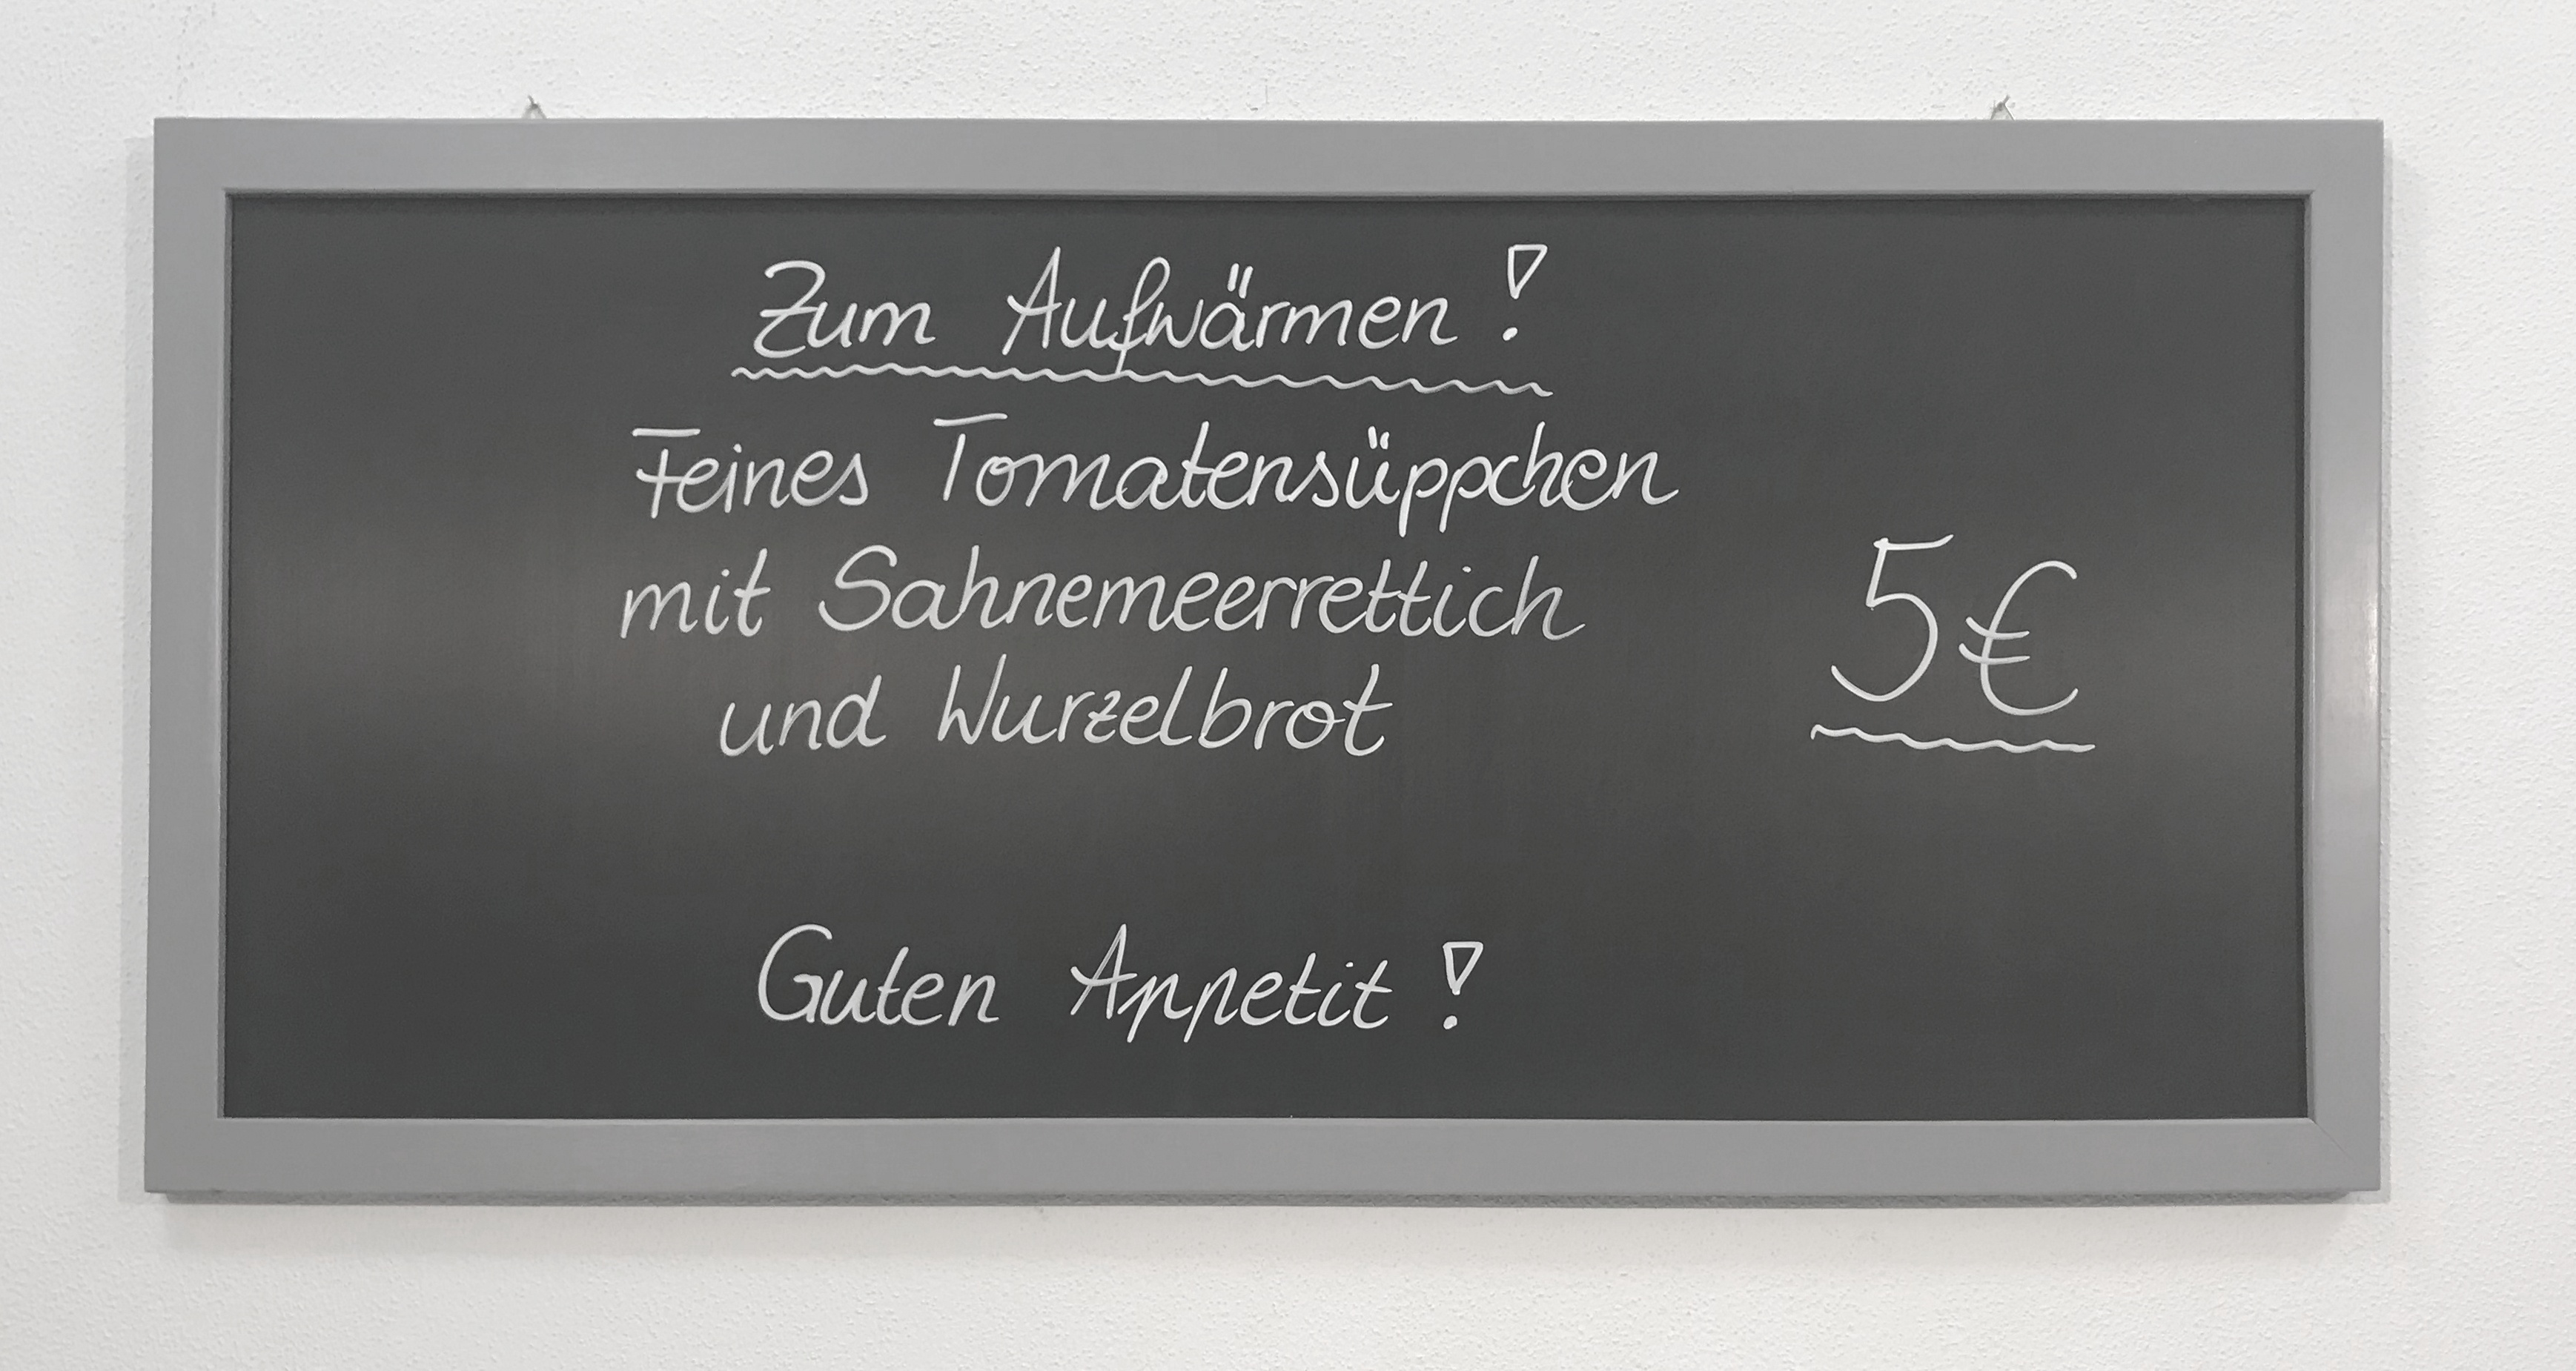 Zum Aufwärmen!
Feines Tomatensüppchen
mit Sahnemeerrettich
und Wurzelbrot
5€
Guten Appetit!